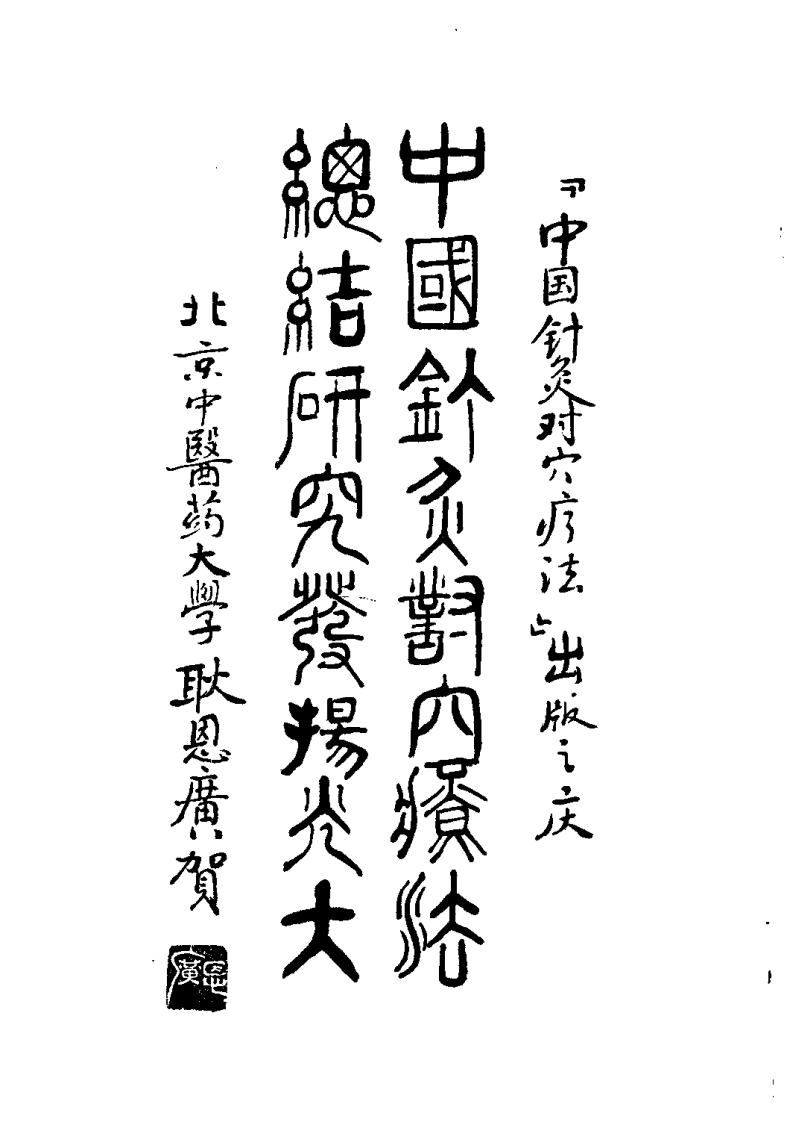 『中国針灸对穴疗法』出版之庆
中國針灸對穴療法
總結研究發揚光大
北京中醫药大學 耿恩廣賀
恩廣